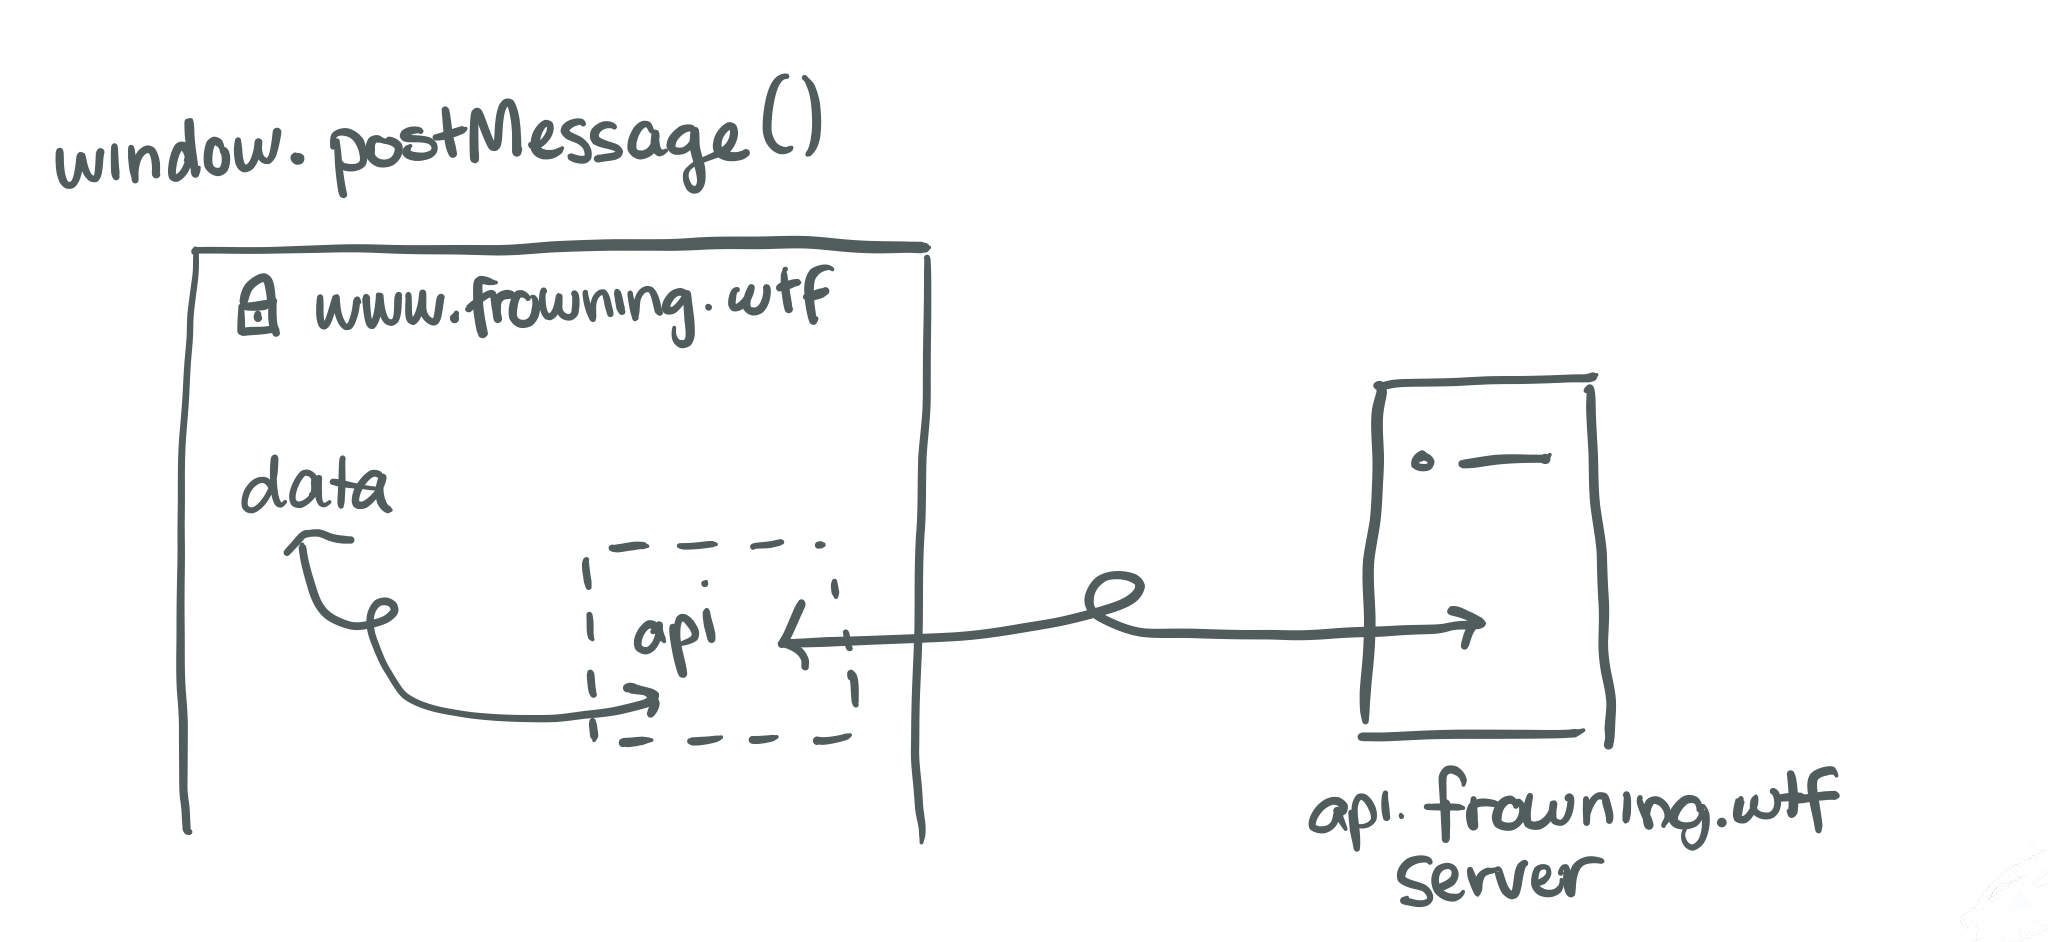 window.postMessage()
www.frowning.wtf
data
api
api.frowning.wtf
server